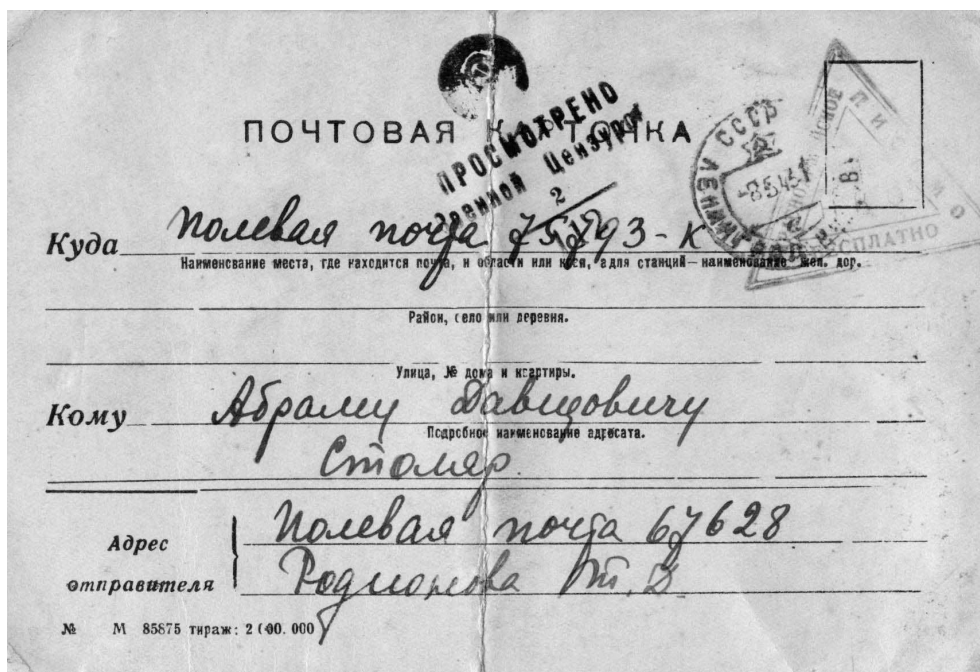 ПОЧТОВАЯ КАРТОЧКА
ПРОСМОТРЕНО
Военной Цензурой
2
ЛЕНИНГРАД СССР
-8 5 45
ПИСЬМО
БЕСПЛАТНО
Куда Полевая почта 75793-К
Наименование места, где находится почта, и области или края, а для станций—наименование жел. дор.
Район, село или деревня.
Улица, № дома и квартиры.
Кому Абраму Давидовичу
Подробное наименование адресата.
Столяр
Адрес
отправителя
Полевая почта 67628
Родионова Т. В
№ М 85875 тираж: 2 000.000